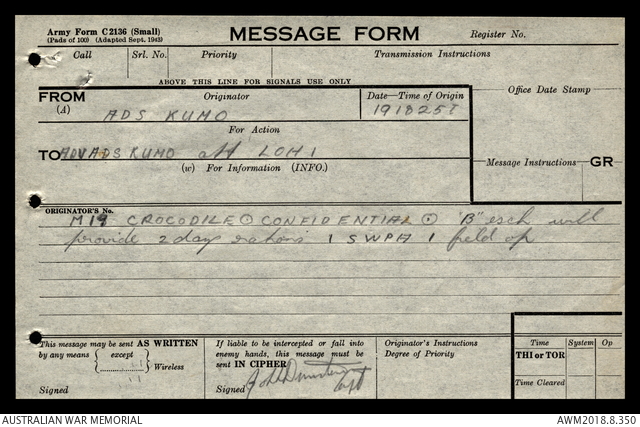 Army Form C2136 (Small)
(Pads of 100) (Adapted Sept. 1943)
MESSAGE FORM
Register No.
Call Srl. No. Priority Transmission Instructions
ABOVE THIS LINE FOR SIGNALS USE ONLY
FROM
(A)
Originator
ADS KUMO
Date—Time of Origin
191825I
Office Date Stamp
For Action
TO ADV ADS KUMO att LOHI
(w) For Information (INFO.)
Message Instructions GR
ORIGINATOR'S No.
M19 CROCODILE ⊙ CONFIDENTIAL ⊙ "B" esch will
provide 2 day rations 1 SWPA 1 field op
This message may be sent AS WRITTEN
by any means { except } Wireless
Signed
If liable to be intercepted or fall into
enemy hands, this message must be
sent IN CIPHER
Signed Capt
Originator's Instructions
Degree of Priority
Time System Op
THI or TOR
Time Cleared
AUSTRALIAN WAR MEMORIAL AWM2018.8.350